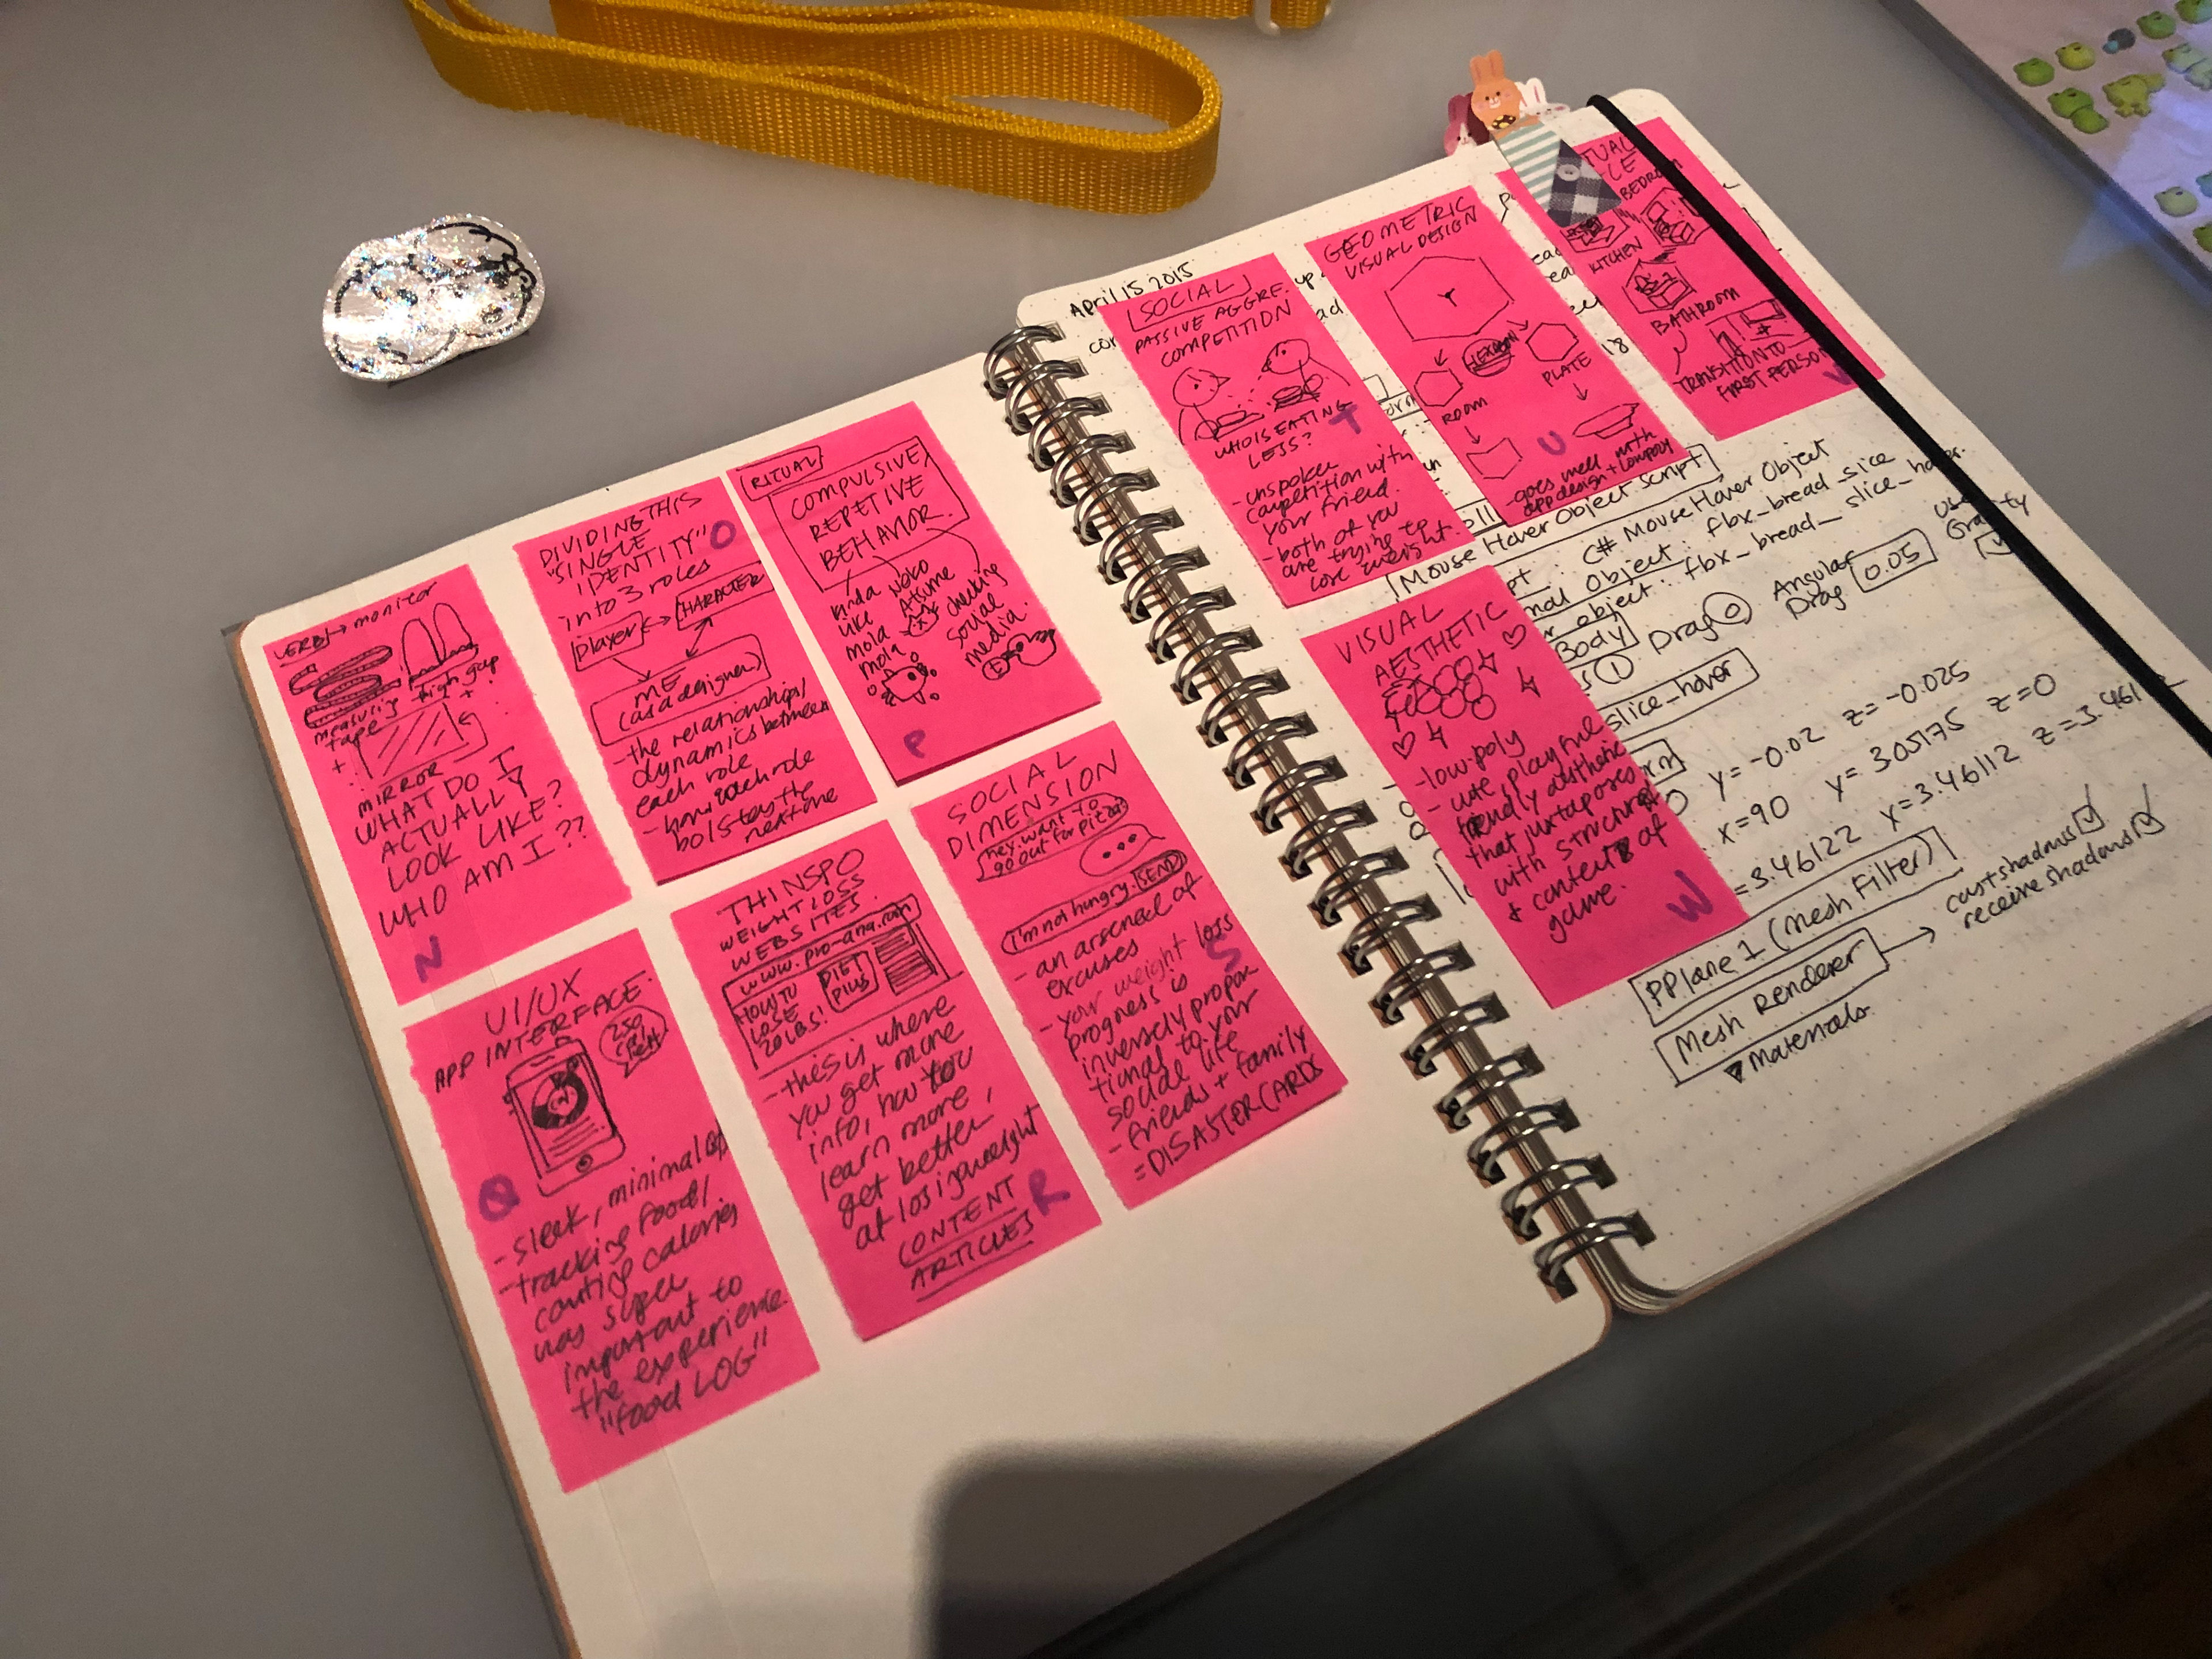 VERB → monitor
measuring
tape
thigh gap
+
+
MIRROR
WHAT DO I
ACTUALLY
LOOK LIKE?
WHO AM I??
N
DIVIDING THIS
"SINGLE
IDENTITY"
O
into 3 roles
player
CHARACTER
ME
(as a designer)
- the relationships/
dynamics between
each role
- how each role
bolsters the
next one
RITUAL
COMPULSIVE/
REPETIVE
BEHAVIOR
kinda
like
mola
mola
NEKO
ATSUME
checking
social
media
P
UI/UX
APP INTERFACE
250
cal
left
Q
- sleek, minimal
- tracking food/
counting calories
was super
important to
the experience
"food LOG"
THINSPO
WEIGHT LOSS
WEBSITES
www.pro-ana.com
HOW TO
LOSE
20 LBS!
DIET
PILLS
- this is where
you get more
info, how you
learn more,
get better
at losing weight
CONTENT
ARTICLES
R
SOCIAL
DIMENSION
hey want to
go out for pizza?
...
I'm not hungry. SEND
- an arsenal of
excuses
- your weight loss
progress is
inversely propor
tional to your
social life
- friends + family
= DISASTER CARDS
S
April 15 2015
SOCIAL
PASSIVE AGGRE.
COMPETITION
WHO IS EATING
LESS?
T
- unspoken
competition with
your friend
- both of you
are trying to
lose weight.
GEOMETRIC
VISUAL DESIGN
HEXAGON
ROOM
PLATE
U
- goes well with
app design + low poly
BEDROOM
KITCHEN
BATHROOM
TRANSITION TO
FIRST PERSON
V
18
VISUAL
AESTHETIC
- low-poly
- cute, playful
friendly aesthetic
that juxtaposes
with structural
+ content of
game.
W
Mouse Hover Object Script
C# Mouse Hover Object
Object: fbx_bread_slice
object: fbx_bread_slice_hover.
Body
Drag 0
Angular
Drag 0.05
Use
Gravity
1
slice_hover
y=-0.02 z=-0.025
x=90 y=305175 z=0
=3.46122 y=3.46112 z=3.461
PPlane 1 (Mesh Filter)
Mesh Renderer → cast shadows
receive shadows
▼ Materials